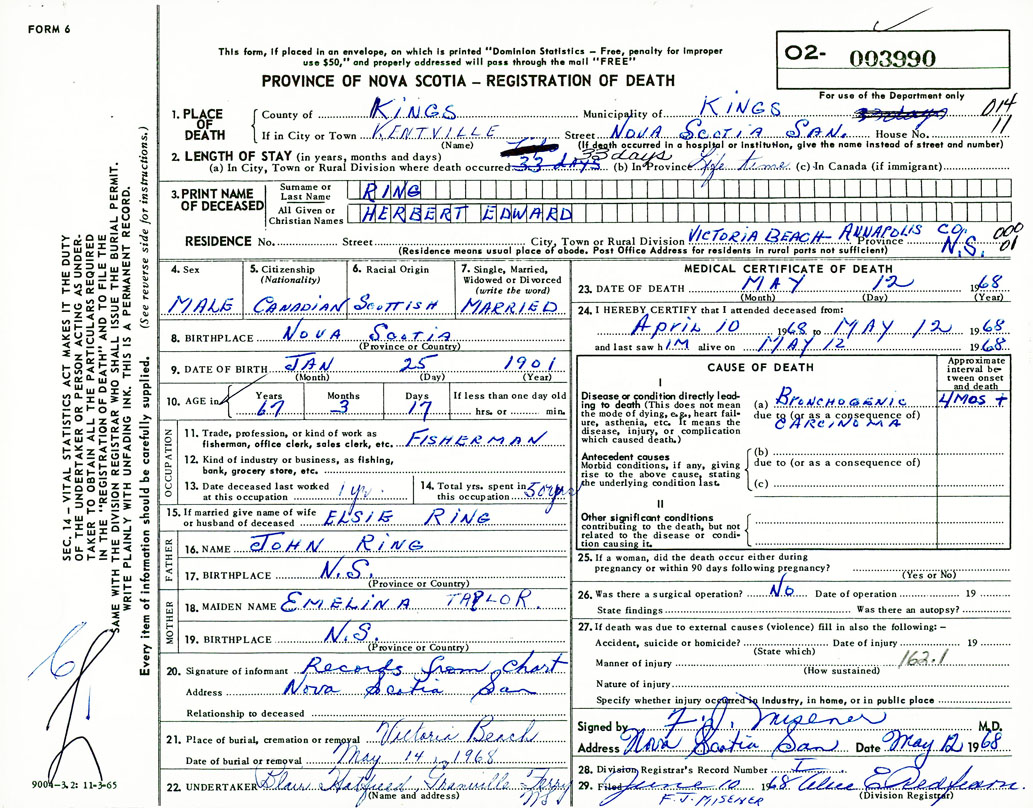 FORM 6
This form, if placed in an envelope, on which is printed "Dominion Statistics – Free, penalty for improper
use $50," and properly addressed will pass through the mail "FREE"
PROVINCE OF NOVA SCOTIA – REGISTRATION OF DEATH
O2- 003990
For use of the Department only
014
11
1. PLACE OF DEATH
County of KINGS Municipality of KINGS
If in City or Town KENTVILLE Street NOVA SCOTIA SAN. House No.
(Name) (If death occurred in a hospital or institution, give the name instead of street and number)
2. LENGTH OF STAY (in years, months and days) 33 days
(a) In City, Town or Rural Division where death occurred 33 days (b) In Province Life time (c) In Canada (if immigrant)
3. PRINT NAME OF DECEASED
Surname or Last Name RING
All Given or Christian Names HERBERT EDWARD
RESIDENCE No. Street City, Town or Rural Division VICTORIA BEACH ANNAPOLIS CO. Province N.S.
000
01
(Residence means usual place of abode. Post Office Address for residents in rural ports not sufficient)
4. Sex MALE
5. Citizenship (Nationality) CANADIAN
6. Racial Origin SCOTTISH
7. Single, Married, Widowed or Divorced (write the word) MARRIED
8. BIRTHPLACE NOVA SCOTIA
(Province or Country)
9. DATE OF BIRTH JAN 25 1901
(Month) (Day) (Year)
10. AGE in Years 67 Months 3 Days 17 If less than one day old hrs. or min.
OCCUPATION
11. Trade, profession, or kind of work as fisherman, office clerk, sales clerk, etc. FISHERMAN
12. Kind of industry or business, as fishing, bank, grocery store, etc.
13. Date deceased last worked at this occupation 1 yr.
14. Total yrs. spent in this occupation 50 yrs
15. If married give name of wife or husband of deceased ELSIE RING
FATHER
16. NAME JOHN RING
17. BIRTHPLACE N.S.
(Province or Country)
MOTHER
18. MAIDEN NAME EMELINA TAYLOR
19. BIRTHPLACE N.S.
(Province or Country)
20. Signature of informant Records from Chart
Address Nova Scotia San
Relationship to deceased
21. Place of burial, cremation or removal Victoria Beach
Date of burial or removal May 14, 1968
22. UNDERTAKER Granville Ferry NS
(Name and address)
MEDICAL CERTIFICATE OF DEATH
23. DATE OF DEATH MAY 12 1968
(Month) (Day) (Year)
24. I HEREBY CERTIFY that I attended deceased from:
April 10 1968 to MAY 12 1968
and last saw hIM alive on MAY 12 1968
CAUSE OF DEATH
Approximate interval between onset and death
I
Disease or condition directly leading to death (This does not mean the mode of dying, e.g., heart failure, asthenia, etc. It means the disease, injury, or complication which caused death.)
(a) BRONCHOGENIC 4 MOS +
due to (or as a consequence of)
CARCINOMA
Antecedent causes
Morbid conditions, if any, giving rise to the above cause, stating the underlying condition last.
(b)
due to (or as a consequence of)
(c)
II
Other significant conditions
contributing to the death, but not related to the disease or condition causing it.
25. If a woman, did the death occur either during
pregnancy or within 90 days following pregnancy?
(Yes or No)
26. Was there a surgical operation? No Date of operation 19
State findings Was there an autopsy?
27. If death was due to external causes (violence) fill in also the following: –
Accident, suicide or homicide? Date of injury 19
(State which)
Manner of injury 162.1
(How sustained)
Nature of injury
Specify whether injury occurred in industry, in home, or in public place
Signed by F. J. Misener M.D.
Address Nova Scotia San Date May 12 1968
28. Division Registrar's Record Number
29. Filed June 10 1968
(Division Registrar)
F. J. MISENER
SEC. 14 – VITAL STATISTICS ACT MAKES IT THE DUTY
OF THE UNDERTAKER OR PERSON ACTING AS UNDER-
TAKER TO OBTAIN ALL THE PARTICULARS REQUIRED
IN THE "REGISTRATION OF DEATH" AND TO FILE THE
SAME WITH THE DIVISION REGISTRAR WHO SHALL ISSUE THE BURIAL PERMIT.
WRITE PLAINLY WITH UNFADING INK. THIS IS A PERMANENT RECORD.
Every item of information should be carefully supplied. (See reverse side for instructions.)
9004-3.2: 11-3-65